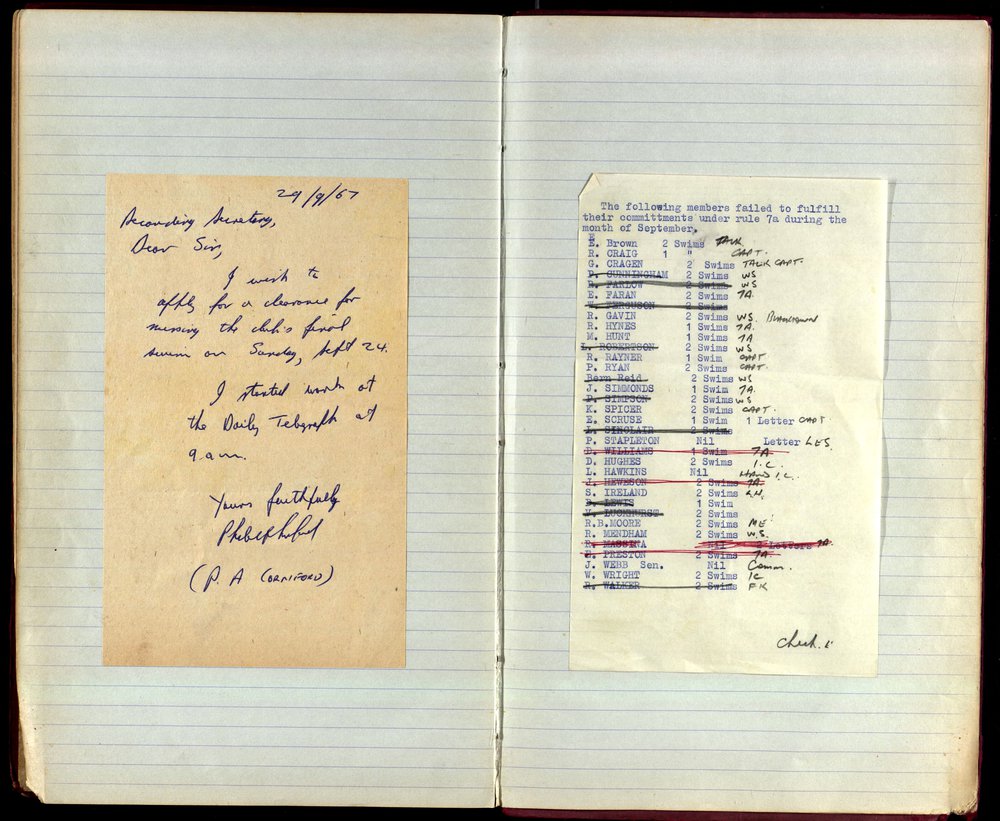 29/9/67
Recording Secretary,
Dear Sir,
I wish to
apply for a clearance for
missing the club's final
swim on Sunday, Sept 24.
I started work at
the Daily Telegraph at
9 a.m.
Yours faithfully
(P. A CORNIFORD)
The following members failed to fulfill
their committments under rule 7a during the
month of September.
E. Brown 2 Swims TALK
R. CRAIG 1 " CAPT.
G. CRAGEN 2 Swims TALK CAPT.
P. CUNNINGHAM 2 Swims WS
B. PARLOW 2 Swims WS
E. FARAN 2 Swims 7A.
W. FERGUSON 2 Swims
R. GAVIN 2 Swims WS.
R. HYNES 1 Swims 7A.
M. HUNT 1 Swims 7A
L. ROBERTSON 2 Swims WS
R. RAYNER 1 Swim CAPT
P. RYAN 2 Swims CAPT.
Bern Reid 2 Swims WS
J. SIMMONDS 1 Swim 7A.
P. SIMPSON 2 Swims WS
K. SPICER 2 Swims CAPT.
E. SCRUSE 1 Swim 1 Letter CAPT
L. SINCLAIR 2 Swims
P. STAPLETON Nil Letter LES.
D. WILLIAMS 1 Swim 7A
D. HUGHES 2 Swims I.C.
L. HAWKINS Nil I.C.
J. HEWESON 2 Swims 7A.
S. IRELAND 2 Swims
D. LEWIS 1 Swim
N. LUCKHURST 2 Swims
R.B.MOORE 2 Swims ME
R. MENDHAM 2 Swims W.S.
E. MASSINA Nil 2 Letters 7A.
B. PRESTON 2 Swims 7A.
J. WEBB Sen. Nil Comm.
W. WRIGHT 2 Swims IC
R. WALKER 2 Swims FK
Check.